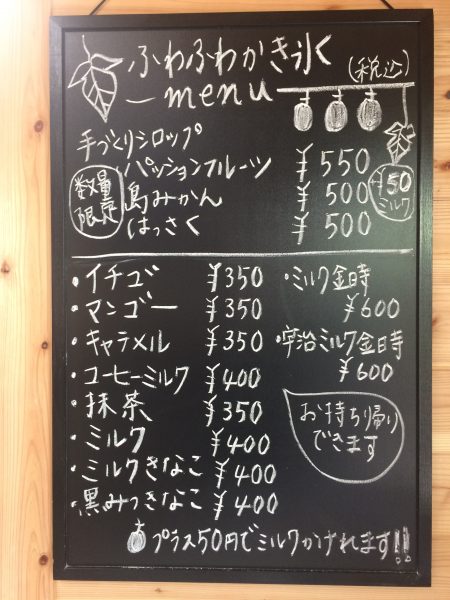 ふわふわかき氷
ーmenu
(税込)
手づくりシロップ
パッションフルーツ ¥550
数量限定
島みかん ¥500
はっさく ¥500
+50
ミルク
・イチゴ ¥350
・マンゴー ¥350
・キャラメル ¥350
・コーヒーミルク ¥400
・抹茶 ¥350
・ミルク ¥400
・ミルクきなこ ¥400
・黒みつきなこ ¥400
・ミルク金時
¥600
・宇治ミルク金時
¥600
お持ち帰り
できます
プラス50円でミルクかけれます!!